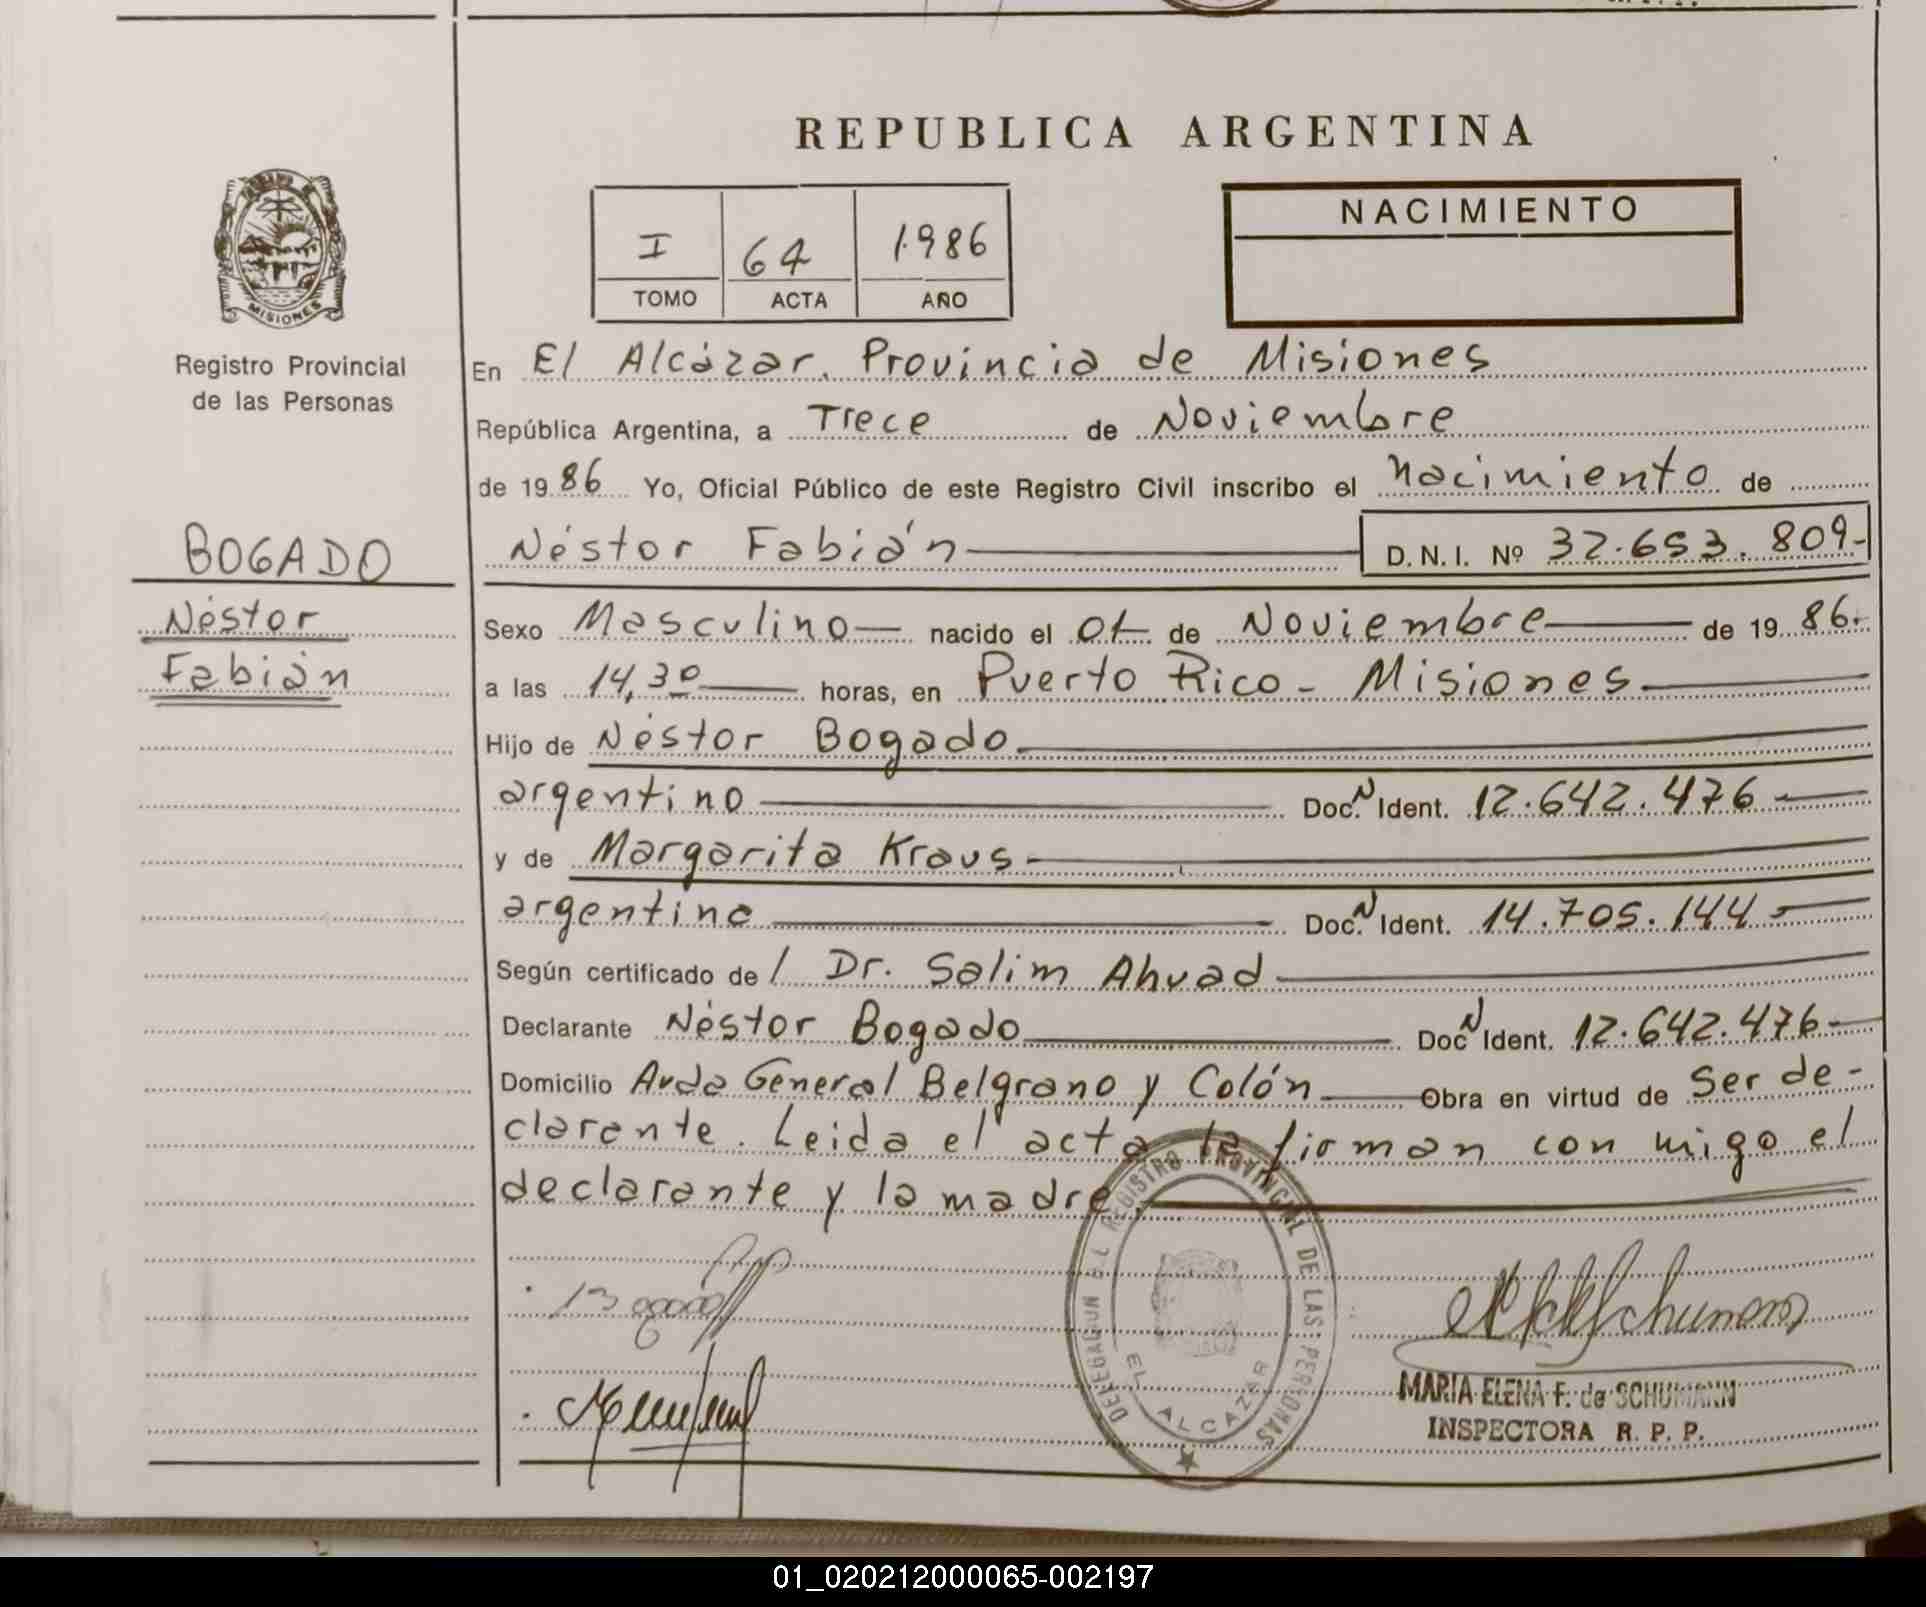 REPUBLICA ARGENTINA
I 64 1986
TOMO ACTA AÑO
NACIMIENTO
MISIONES
Registro Provincial
de las Personas
BOGADO
Néstor
Fabián
En El Alcázar. Provincia de Misiones
República Argentina, a Trece de Noviembre
de 1986 Yo, Oficial Público de este Registro Civil inscribo el nacimiento de
Néstor Fabián D.N.I. Nº 32.653.809-
Sexo Masculino nacido el 01 de Noviembre de 1986.
a las 14,30 horas, en Puerto Rico - Misiones
Hijo de Néstor Bogado
argentino Doc. N Ident. 12.642.476
y de Margarita Kraus
argentina Doc. N Ident. 14.705.144
Según certificado de / Dr. Salim Ahuad
Declarante Néstor Bogado Doc N Ident. 12.642.476
Domicilio Avda General Belgrano y Colón Obra en virtud de Ser de-
clarante. Leida el acta la firman con migo el
declarante y la madre.
REGISTRO PROVINCIAL DE LAS PERSONAS
EL ALCAZAR
MARIA ELENA F. de SCHUMANN
INSPECTORA R. P. P.
01_020212000065-002197